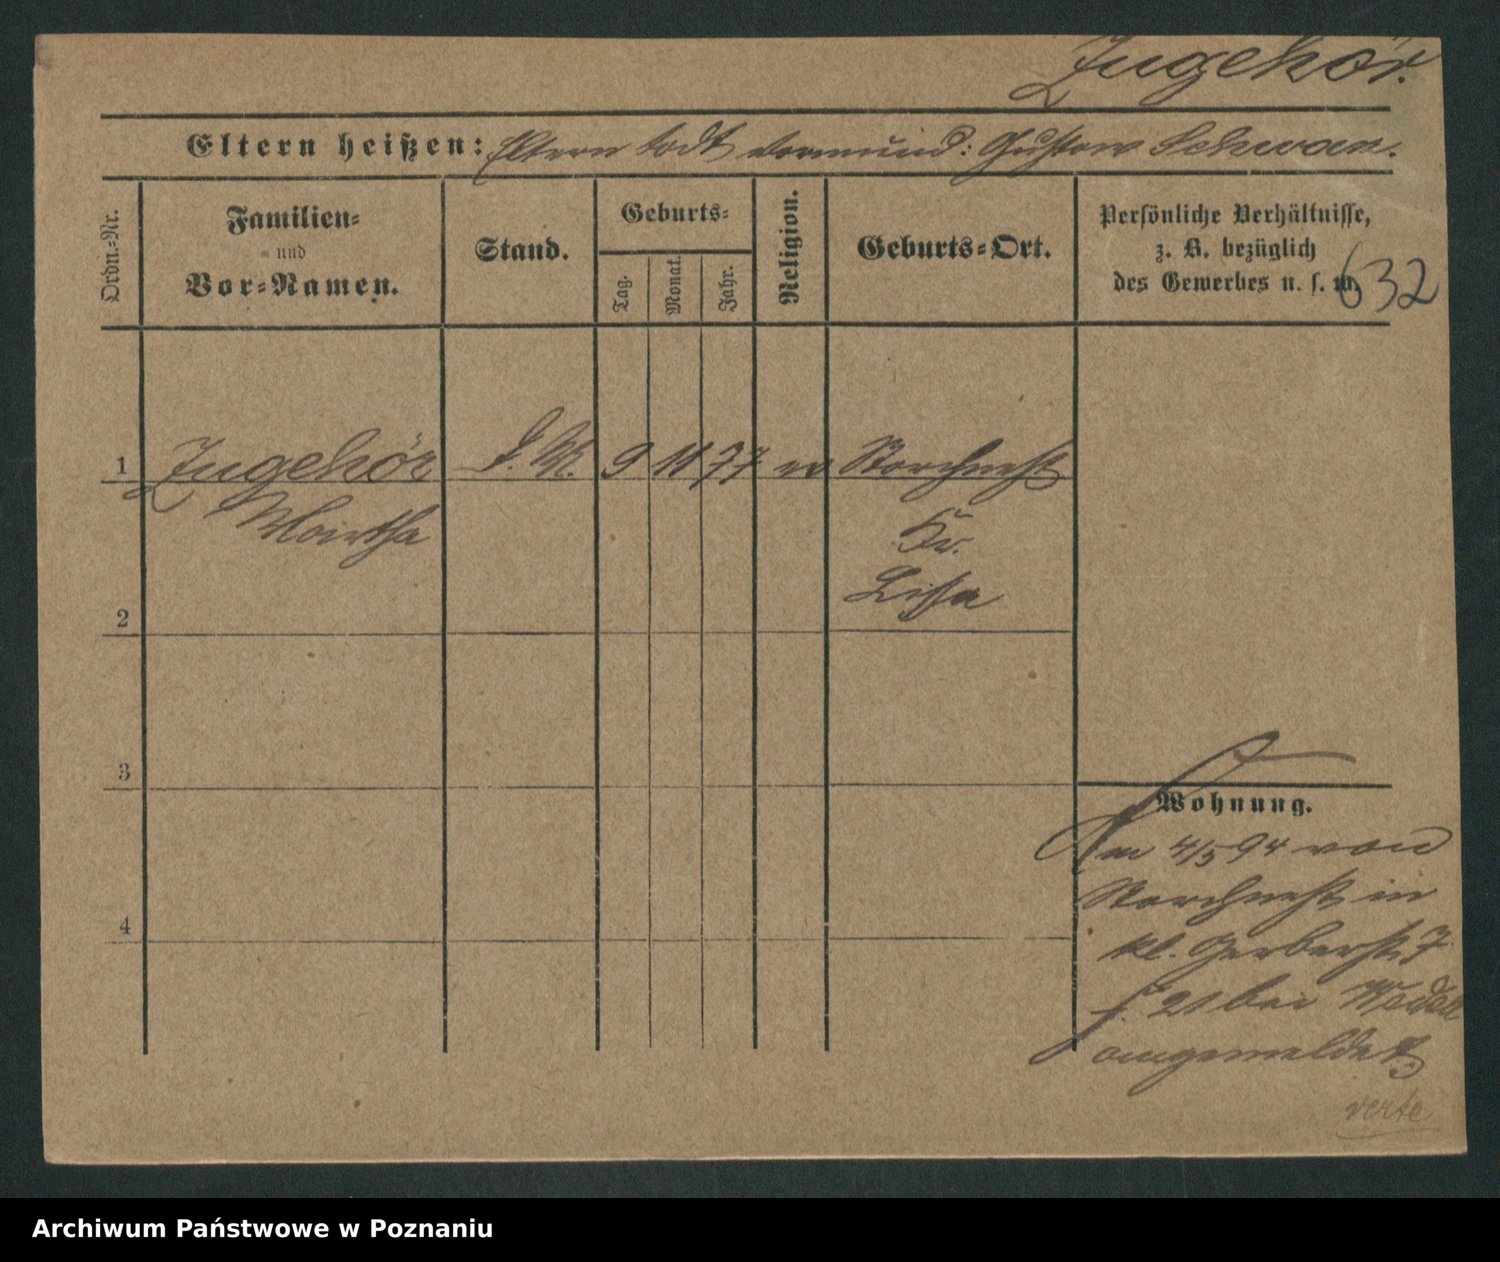 Zugehör.
Eltern heißen: Eltern todt Vormund: Gustav Schwan.
Ordn.-Nr.
Familien-
und
Vor-Namen.
Stand.
Geburts-
Tag.
Monat.
Jahr.
Religion.
Geburts-Ort.
Persönliche Verhältnisse,
z. B. bezüglich
des Gewerbes u. s. w.
632
1 Zugehör 9 11 77 ev Storchnest
Martha Kr.
Lissa
2
3
4
Wohnung.
Am 4/5 94 von
Storchnest in
kl. Gerberstr 7
bei
angemeldet
verte
Archiwum Państwowe w Poznaniu